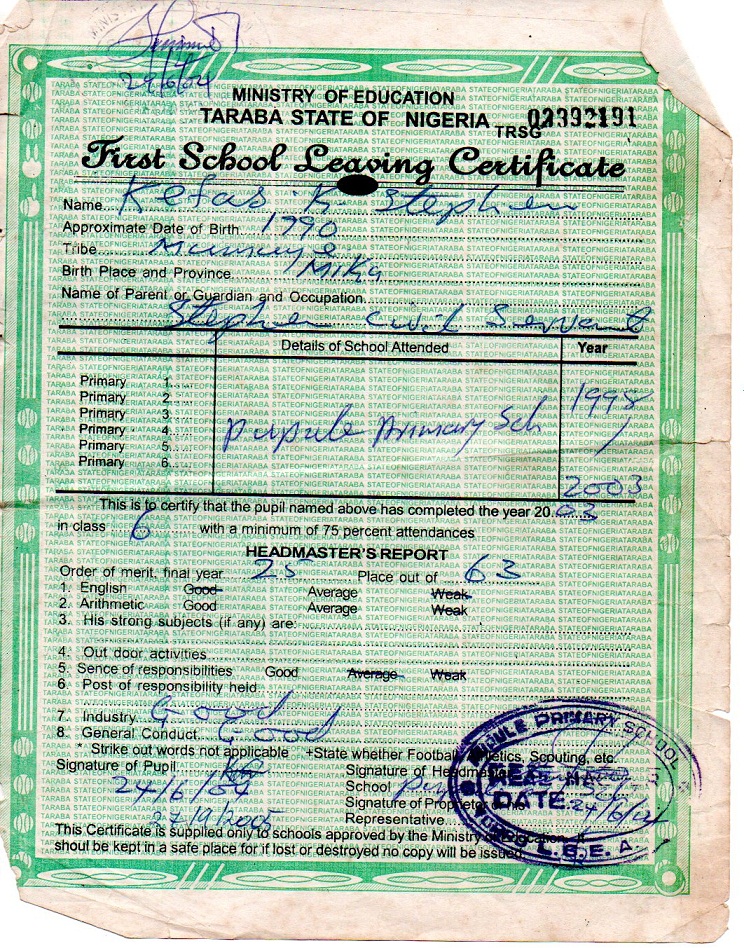 29/6/04
MINISTRY OF EDUCATION
TARABA STATE OF NIGERIA TRSG 02392191
First School Leaving Certificate
Name Kefas K. Stephen
Approximate Date of Birth 1990
Tribe Mumuye
Birth Place and Province Mika
Name of Parent or Guardian and Occupation
Stephen Civil Servant
Details of School Attended Year
Primary 1
Primary 2
Primary 3 1998
Primary 4 Pupule Primary Sch /
Primary 5
Primary 6
2003
This is to certify that the pupil named above has completed the year 20 03
in class 6 with a minimum of 75 percent attendances
HEADMASTER'S REPORT
Order of merit, final year 25 Place out of 63
1. English Good Average Weak
2. Arithmetic Good Average Weak
3. His strong subjects (if any) are:
4. Out door activities
5. Sence of responsibilities Good Average Weak
6. Post of responsibility held
7. Industry Good
8. General Conduct Good
* Strike out words not applicable +State whether Football, Athletics, Scouting, etc.
Signature of Pupil Signature of Headmaster
24/6/04 School
Signature of Proprietor
27/9/2005 Representative
This Certificate is supplied only to schools approved by the Ministry of Education
shoul be kept in a safe place for if lost or destroyed no copy will be issued
PUPULE PRIMARY SCHOOL
HEAD MASTER
DATE 24/6/04
L.G.E.A.